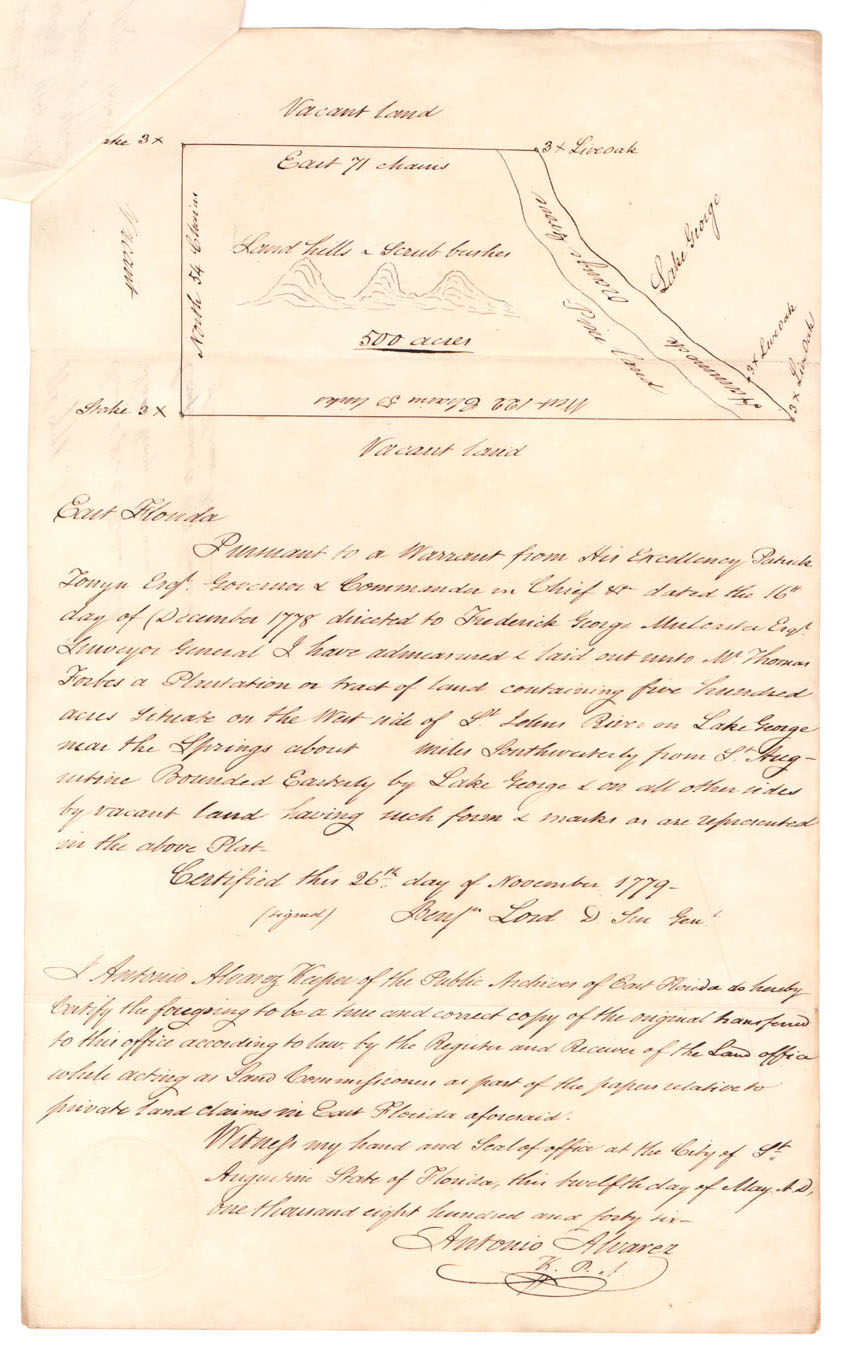 Vacant land
ake 3x
3x Liveoak
East 71 chains
Vacant
North 54 Chains
Orange Grove
Lake George
Sand hills & Scrub bushes
Pine land
500 acres
Hammock
3x Liveoak
3x Liveoak
West 122 Chains 50 links
Stake 3x
Vacant land
East Florida
Pursuant to a Warrant from His Excellency Patrick
Tonyn Esqr. Governor & Commander in Chief &c dated the 16th
day of December 1778 directed to Frederick George Mulcaster Esqr.
Surveyor General I have admeasured & laid out unto Mr Thomas
Forbes a Plantation or tract of land containing five hundred
acres Situate on the West side of St Johns River on Lake George
near the Springs about miles Southwesterly from St Aug-
ustine Bounded Easterly by Lake George & on all other sides
by vacant land having such form & marks as are represented
in the above Plat-
Certified this 26th day of November 1779-
(signed) Benjn Lord D Sur Genl
I Antonio Alvarez Keeper of the Public Archives of East Florida do hereby
Certify the foregoing to be a true and correct copy of the original transferred
to this office according to law. by the Register and Receiver of the Land office
while acting as Land Commissioners as part of the papers relative to
private land claims in East Florida aforesaid.
Witness my hand and Seal of office at the City of St
Augustine State of Florida, this twelfth day of May A.D,
one thousand eight hundred and forty six-
Antonio Alvarez
K. P. A.